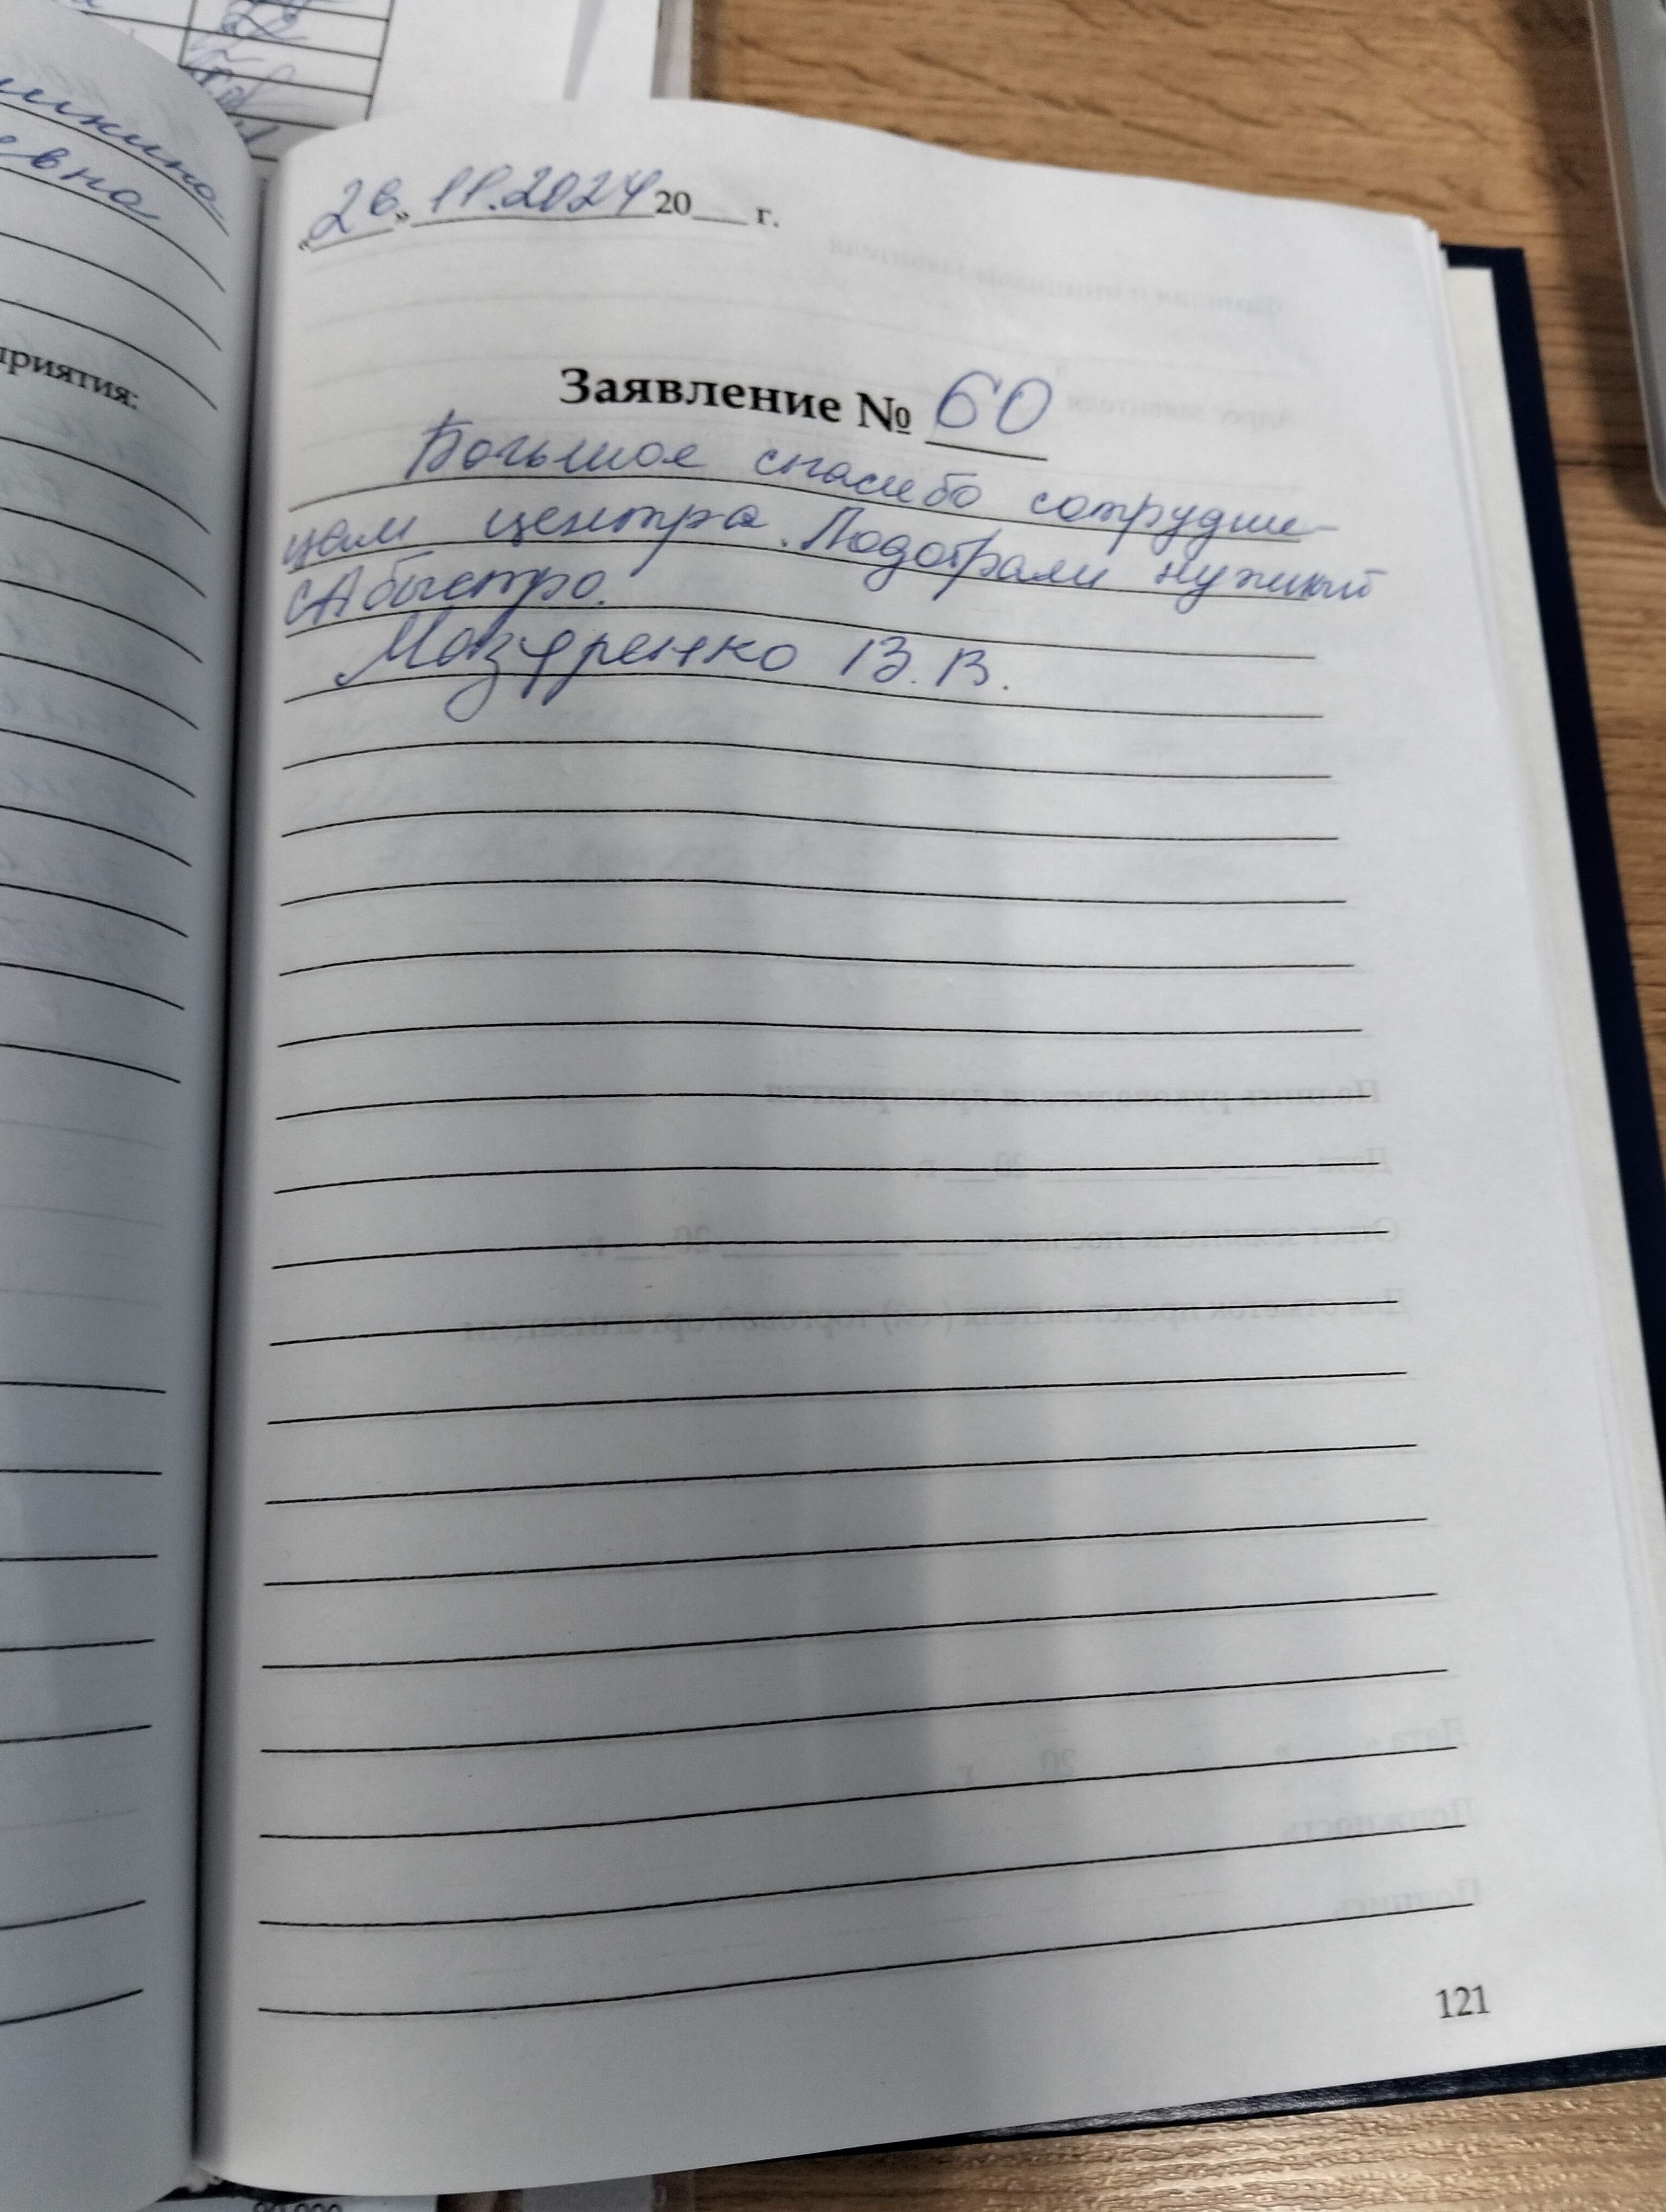 шкина
евна
приятия:
«26» 11.2024 20___ г.
Заявление № 60
Большое спасибо сотрудни-
цам центра. Подобрали нужный
СА быстро.
Мазуренко В.В.
121